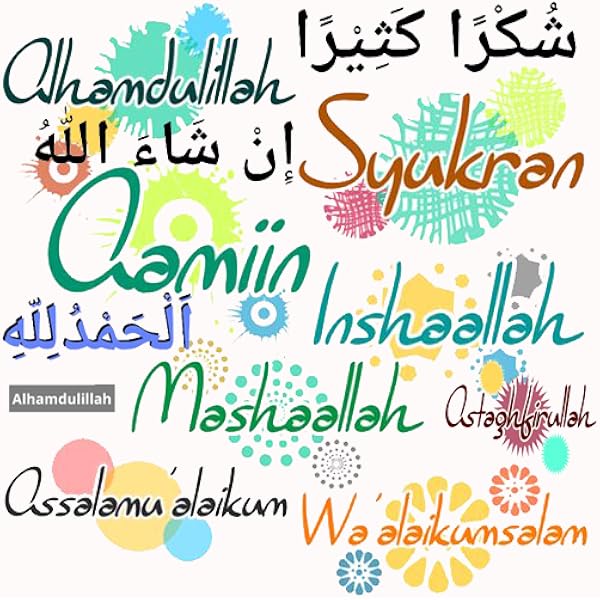 شُكْرًا كَثِيْرًا
Alhamdulillah
إِنْ شَاءَ اللّٰهُ
Syukran
Aamiin
Inshaallah
اَلْحَمْدُلِلّٰهِ
Mashaallah
Alhamdulillah
Astaghfirullah
Assalamu'alaikum
Wa'alaikumsalam